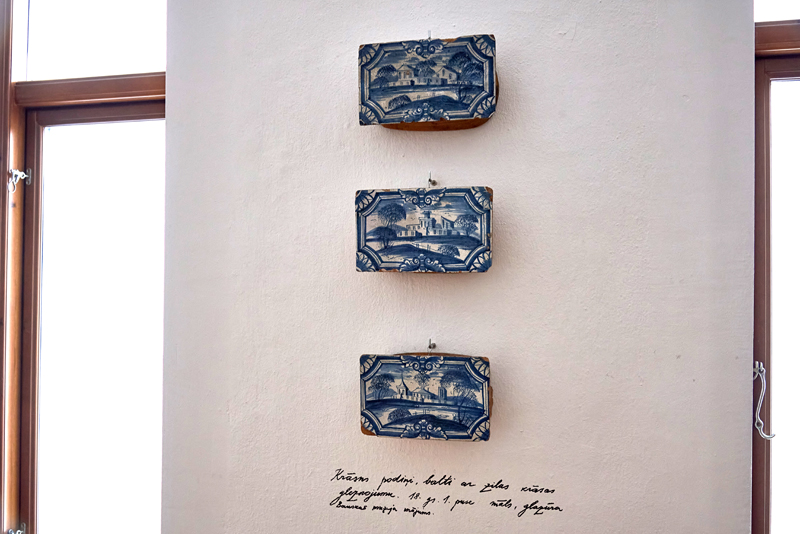 Krāsns podiņi, balti ar zilas krāsas
gleznojumu. 18. gs. 1. puse māls, glazūra